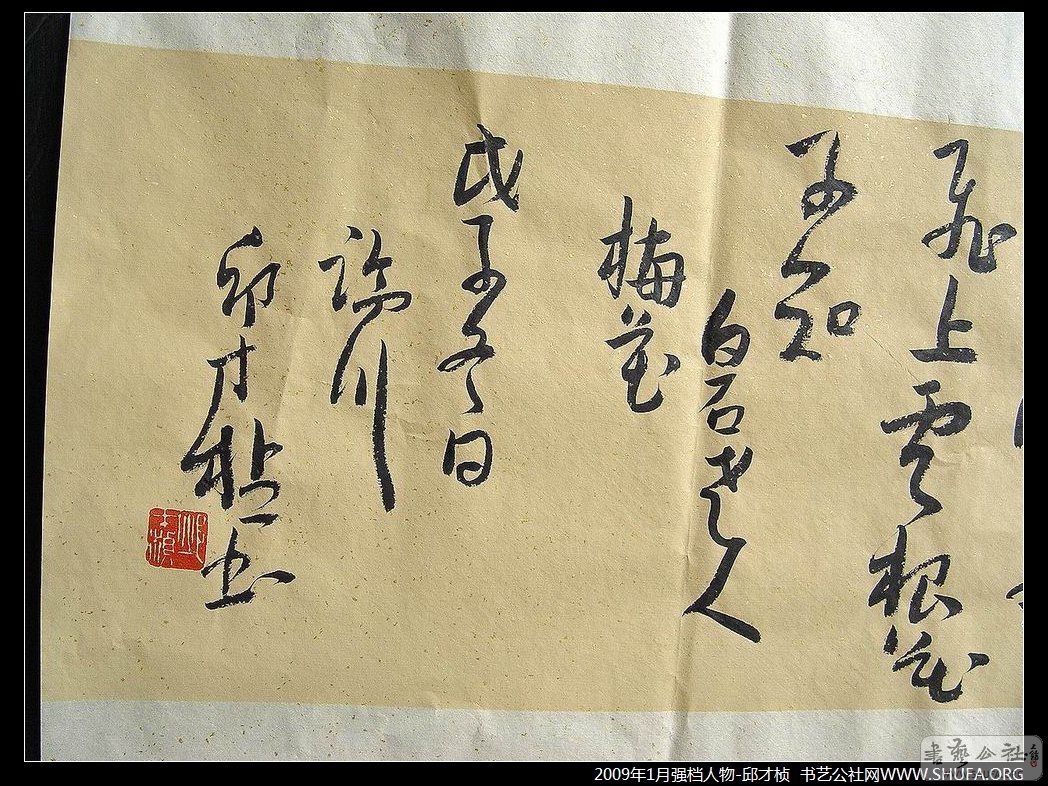 飛上雲根花
不知
白石老人
梅花
戊子冬日
川
邱才楨书
2009年1月强档人物-邱才桢 书艺公社网WWW.SHUFA.ORG
書藝公社